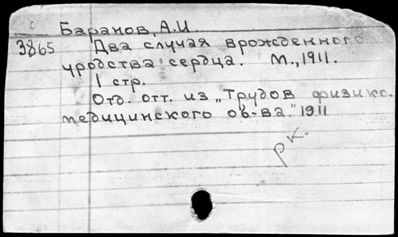 с
Баранов, А.И.
3865 Два случая врожденного
уродства сердца. М., 1911.
1 стр.
Отд. отт. из „Трудов физико-
медицинского об-ва." 1911
рк.